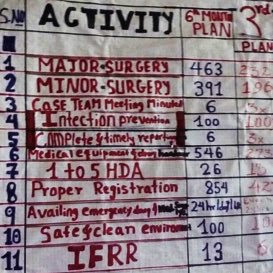 S.No ACTIVITY 6th Month PLAN 3rd
1 MAJOR-SURGERY 463
2 MINOR-SURGERY 391 196
3 CASE TEAM Meeting Minutes 6 3
4 Infection prevention 100 100
5 Complete & timely report 6
6 Medical equipment & drug 546
7 1 to 5 HDA 26
8 Proper Registration 854
9 Availing emergency drug 24hr
10 Safe & clean environment 100
11 IFRR 13 6